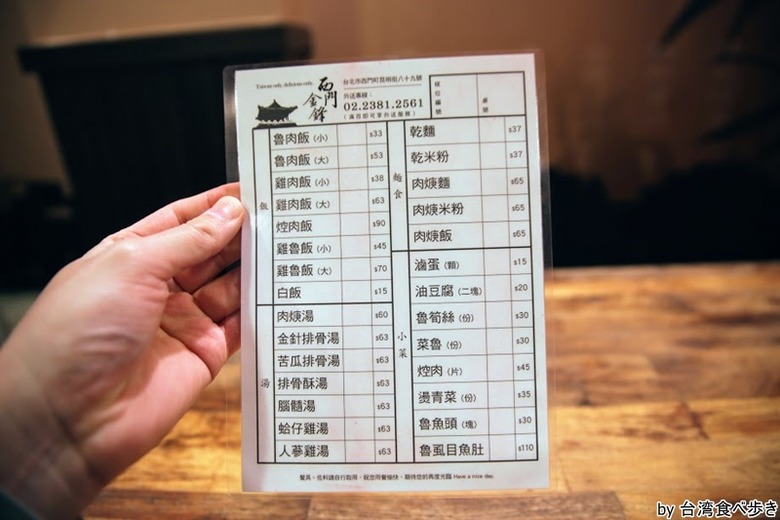 Taiwan only, delicious only.
西門
金鋒
台北市西門町昆明街八十九號
外送專線：
02.2381.2561
桌號
飯
魯肉飯（小） $33
魯肉飯（大） $53
雞肉飯（小） $38
雞肉飯（大） $63
焢肉飯 $90
雞魯飯（小） $45
雞魯飯（大） $70
白飯 $15
湯
肉焿湯 $60
金針排骨湯 $63
苦瓜排骨湯 $63
排骨酥湯 $63
腦髓湯 $63
蛤仔雞湯 $63
人蔘雞湯 $63
麵食
乾麵 $37
乾米粉 $37
肉焿麵 $65
肉焿米粉 $65
肉焿飯 $65
小菜
滷蛋（顆） $15
油豆腐（二塊） $20
魯筍絲（份） $30
菜魯（份） $30
焢肉（片） $45
燙青菜（份） $35
魯魚頭（塊） $30
魯虱目魚肚 $110
餐具、佐料請自行取用，祝您用餐愉快，期待您的再度光臨 Have a nice day.
by 台湾食べ歩き